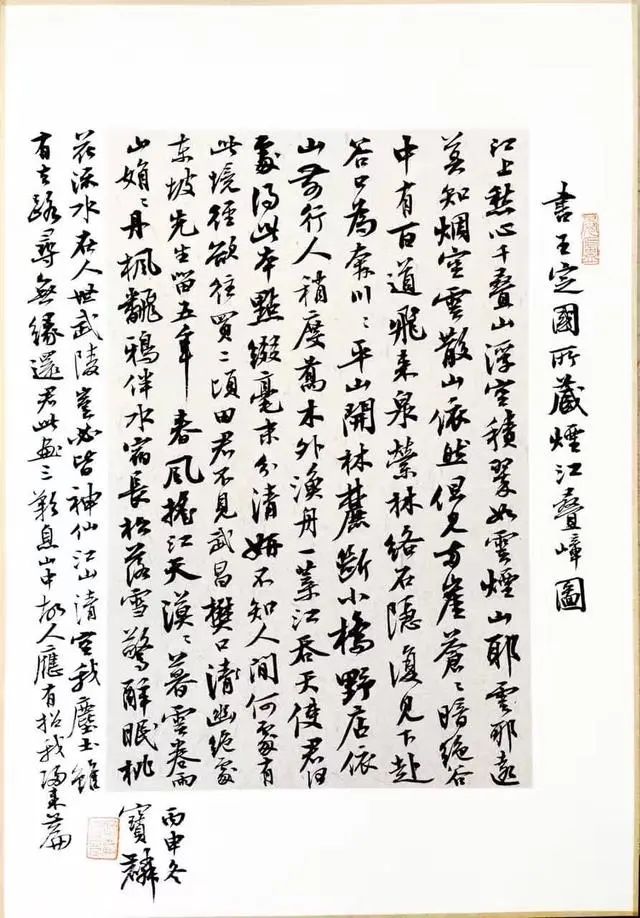 書王定國所藏煙江疊嶂圖
江上愁心千疊山浮空積翠如雲煙山耶雲耶遠
莫知烟空雲散山依然但見兩崖蒼〻暗絕谷
中有百道飛來泉縈林絡石隱復見下赴
谷口為奔川〻平山開林麓斷小橋野店依
山前行人稍度喬木外漁舟一葉江吞天使君何
處得此本點綴毫末分清妍不知人間何處有
此境徑欲往買二頃田君不見武昌樊口清幽絕處
東坡先生留五年春風搖江天漠〻暮雲卷雨
山娟〻丹楓翻鴉伴水宿長松落雪驚醉眠桃
花流水在人世武陵豈必皆神仙江山清空我塵土雖
有去路尋無緣還君此畫三歎息山中故人應有招我歸來篇
丙申冬
寶麟